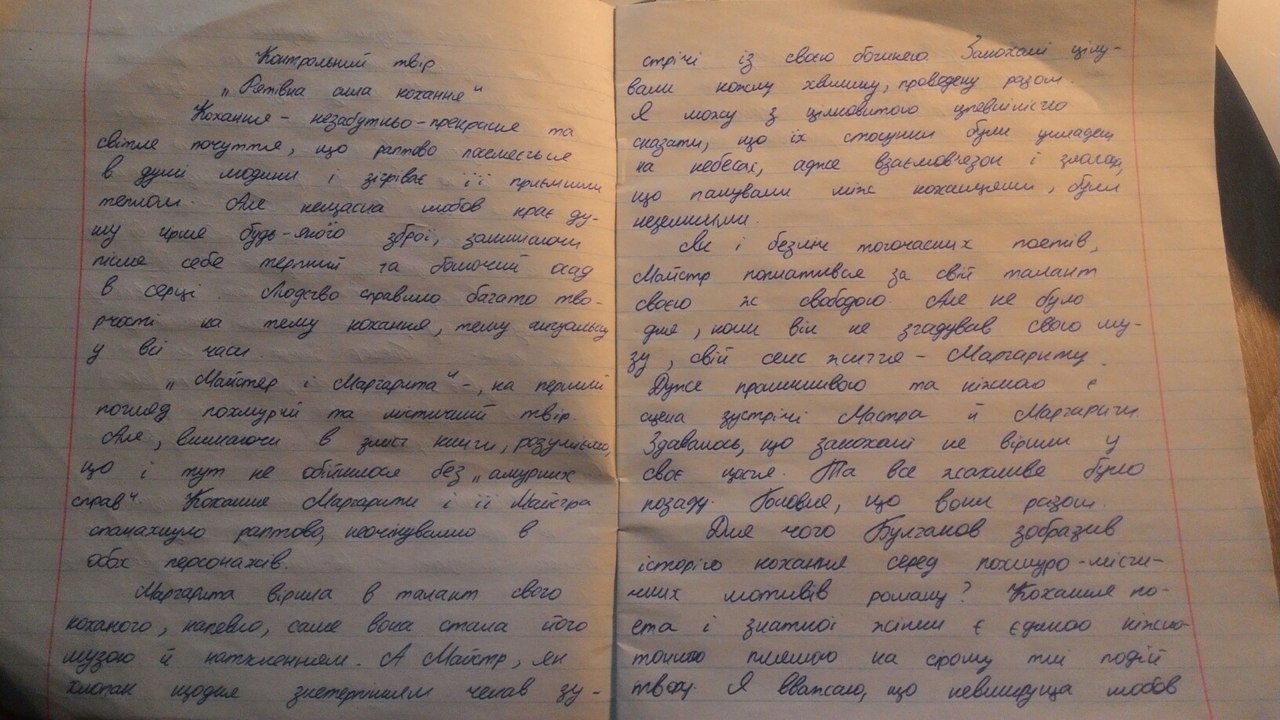 Контрольний твір
„Рятівна сила кохання"
Кохання - незабутньо-прекрасне та
світле почуття, що раптово поселяється
в душі людини і зігріває її приємним
теплом. Але нещасна любов крає ду-
шу гірше будь-якої зброї, залишаючи
після себе терпкий та болючий осад
в серці. Людство справило багато тво-
рчості на тему кохання, тему актуальну
у всі часи.
„Майстер і Маргарита" -, на перший
погляд похмурий та містичний твір.
Але, вникаючи в зміст книги, розуміємо,
що і тут не обійшлося без „амурних
справ". Кохання Маргарити і її Майстра
спалахнуло раптово, неочікувано в
обох персонажів.
Маргарита вірила в талант свого
коханого, напевно, саме вона стала його
музою й натхненням. А Майстр, як
хлопак щодня знетерпінням чекав зу-
стрічі із своєю богинею. Закохані цілу-
вали кожну хвилину, проведену разом.
Я можу з цілковитою упевністю
сказати, що їх стосунки були укладен
на небесах, адже взаємозв'язок і злагода,
що панували між коханцями, були
неземними.
Як і безліч тогочасних поетів,
Майстр поплатився за свій талант
своєю ж свободою. Але не було
дня, коли він не згадував свою му-
зу, свій сенс життя - Маргариту.
Дуже проникливою та ніжною є
сцена зустрічі Мастра й Маргарити.
Здавалось, що закохані не вірили у
своє щастя. Та все жахливе було
позаду. Головне, що вони разом.
Для чого Булгаков зобразив
історію кохання серед похмуро-місти-
чних мотивів роману? Кохання по-
ета і знатної жінки є єдиною ніжно
тонкою плямою на сірому тлі подій
твору. Я вважаю, що невмируща любов